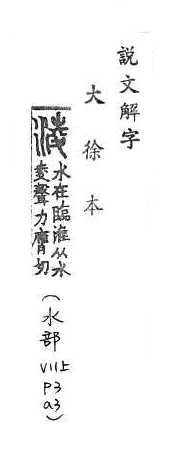 說文解字
大徐本
淩 水在臨淮从水
夌聲力膺切
(水部
VII上
P3
a3)